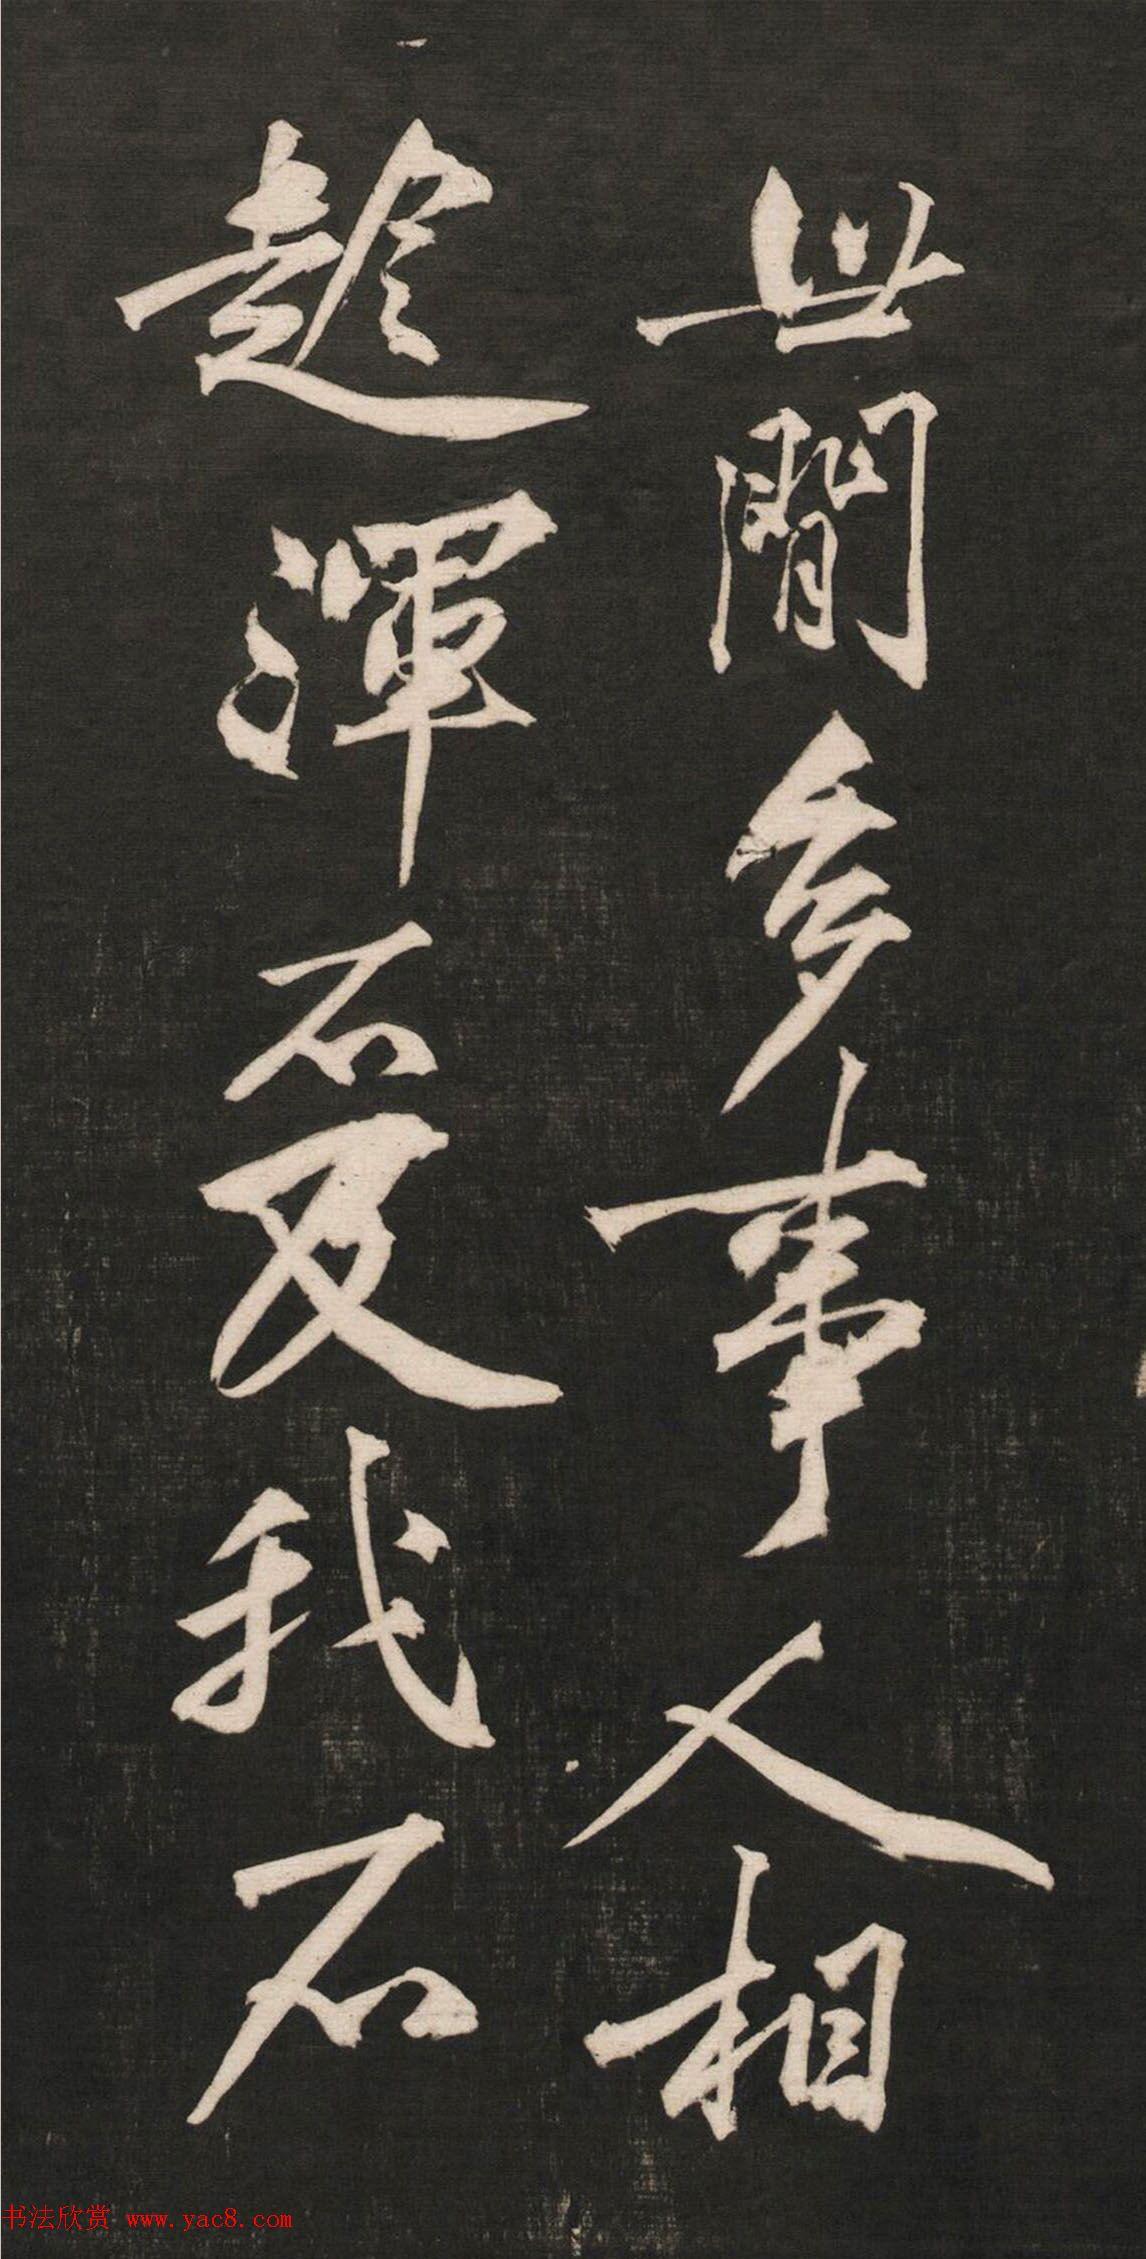 世間多事人相
趁渾不及我不
书法欣赏 www.yac8.com